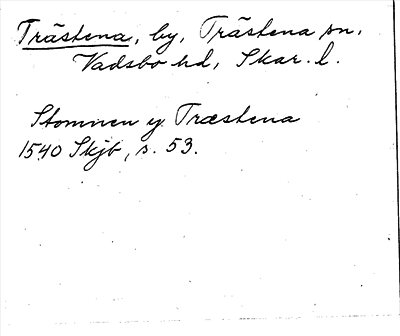 Trästena, by, Trästena sn,
Vadsbo hd, Skar. l.
Stommen y Træstena
1540 Skjb, s. 53.